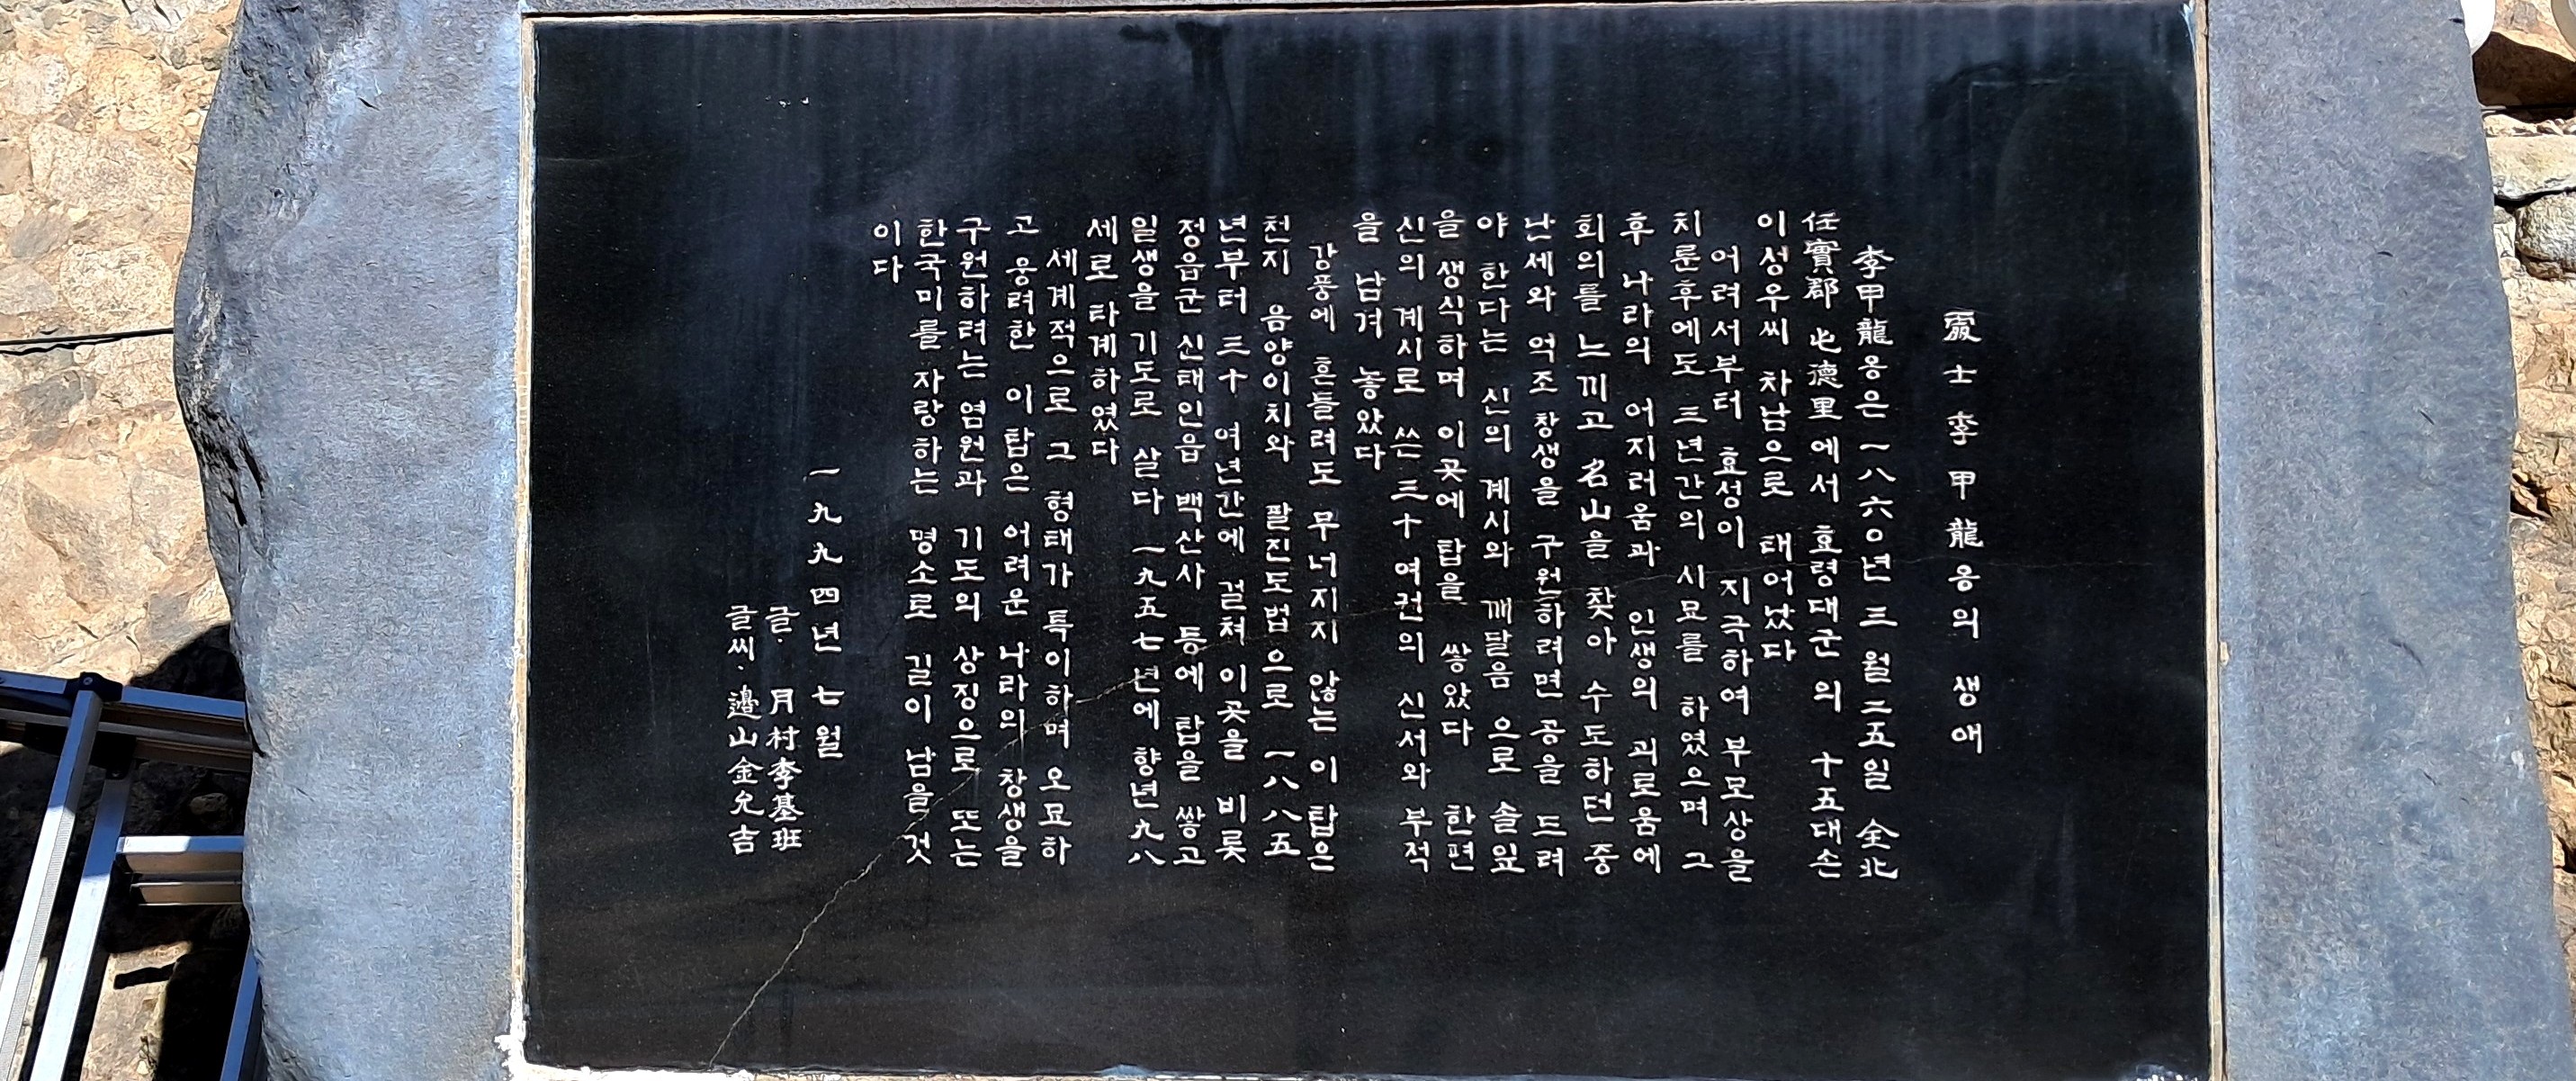 處士李甲龍옹의 생애
李甲龍옹은 一八六○년 三월 二五일 全北
任實郡 屯德里에서 효령대군의 十五대손
이성우씨 차남으로 태어났다
어려서부터 효성이 지극하여 부모상을
치룬후에도 三년간의 시묘를 하였으며 그
후 나라의 어지러움과 인생의 괴로움에
회의를 느끼고 名山을 찾아 수도하던 중
난세와 억조 창생을 구원하려면 공을 드려
야 한다는 신의 계시와 깨달음 으로 솔잎
을 생식하며 이곳에 탑을 쌓았다 한편
신의 계시로 쓴 三十 여권의 신서와 부적
을 남겨 놓았다
강풍에 흔들려도 무너지지 않는 이 탑은
천지 음양이치와 팔진도법으로 一八八五
년부터 三十 여년간에 걸쳐 이곳을 비롯
정읍군 신태인읍 백산사 등에 탑을 쌓고
일생을 기도로 살다 一九五七년에 향년 九八
세로 타계하였다
세계적으로 그 형태가 특이하며 오묘하
고 웅려한 이 탑은 어려운 나라의 창생을
구원하려는 염원과 기도의 상징으로 또는
한국미를 자랑하는 명소로 길이 남을 것
이다
一九九四년 七월
글· 月村 李基班
글씨· 邊山 金允吉